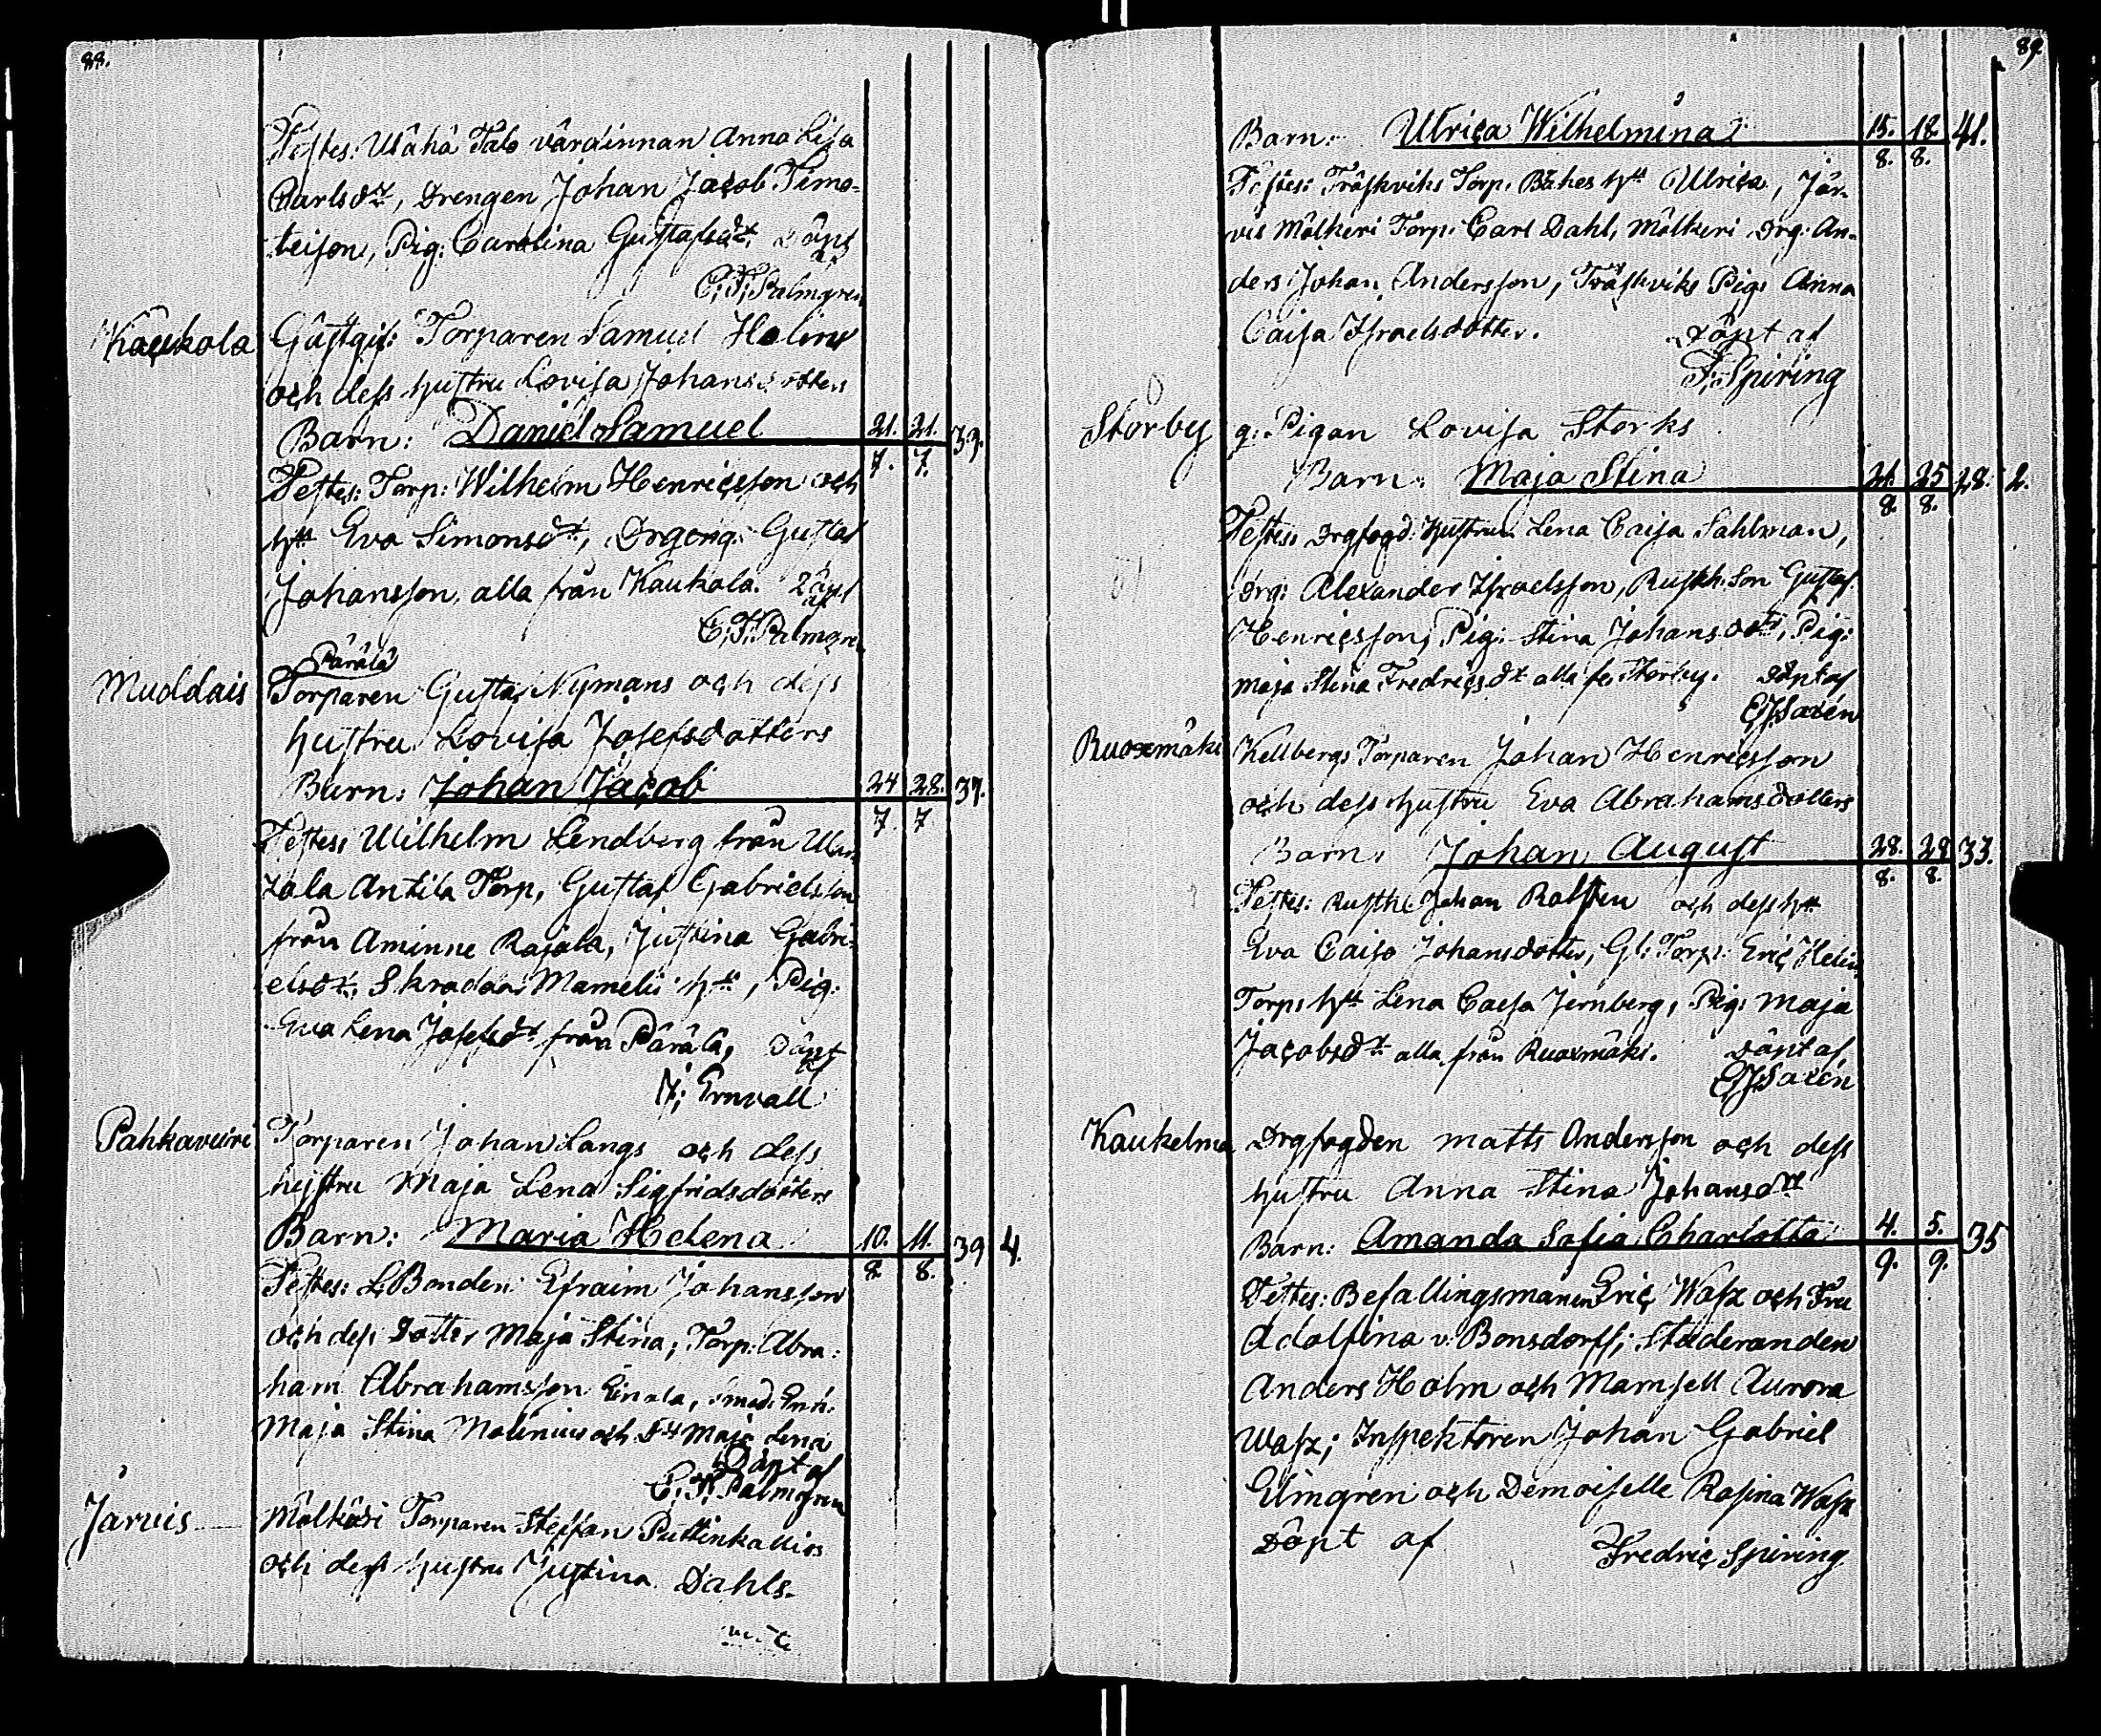 88.
Testes: Uläha Talo värdinnan Anna Lisa
Carlsdr, Drengen Johan Jacob Timo-
teison, Pig: Carolina Gustafsdr. Döpt
af
C: F: Palmgren
Kaukola Gästgif: Torparen Samuel Holms
och dess hustru Lovisa Johansdotters
Barn: Daniel Samuel 21. 21. 39.
7. 7.
Testes: Torp: Wilhelm Henricsson och
h:u Eva Simonsdr, Drgeng: Gustaf
Johansson, alla från Kaukola. Döpt
af
C: F: Palmgren
Pärälä
Muddais Torparen Gustaf Nymans och dess
hustru Lovisa Josefsdotters
Barn: Johan Jacob 24 28. 37.
7. 7
Testes: Wilhelm Lendberg från
Antila Torp, Gustaf Gabrielsson
från Aminne Rajala, Justina Gabri-
elsdr, Skraddar Mamelii h:u, Pig:
Eva Lena Josefsdr från Pärälä, Döpt
af
J: Ernvall
Pahkavuori Torparen Johan Langs och dess
hustru Maja Lena Sigfridsdotters
Barn: Maria Helena 10. 11. 39 4.
8. 8.
Testes: LBonden Efraim Johansson
och dess Dotter Maja Stina, Torp: Abra-
ham Abrahamsson Einola, Smed: Enk:
Maja Stina Molinius och Maja Lena
Döpt af
C. F. Palmgren
Järvis Mälkäri Torparen Steffan Puttinkallios
och dess hustru Justina Dahls.
89
Barn: Ulrica Wilhelmina 15. 18. 41.
8. 8.
Testes: Träskviks Torp. Bäkes h:u Ulrica, Jär-
vis Mälkeri Torp: Carl Dahl, Mälkeri Drg: An-
ders Johan Andersson, Träskviks Pig: Anna
Caisa Israelsdotter. Döpt af
F: Spiring
Storby g: Pigan Lovisa Storks
Barn: Maja Stina 21. 25 28. 2.
8. 8.
Testes: Drgfogd: hustrun Lena Caisa Sahlman,
Drg: Alexander Israelsson, Rusth: Son Gustaf
Henricsson, Pig: Stina Johansdotr, Pig:
Maja Stina Fredricsdr alla fr Storby. Döpt af
Saxén
Ruoxmäki Kellbergs Torparen Johan Henricsson
och dess hustru Eva Abrahamsdotters
Barn: Johan August 28. 28 33.
8. 8.
Testes: Rusth: Johan och dess h:u
Eva Caisa Johansdotter, Gl: Torp: Eric Helin
Torp: h:u Lena Caisa Jernberg, Pig: Maja
Jacobsdr alla från Ruoxmäki. Döpt af
Saxén
Kaukelma Drgfogden Matts Andersson och dess
hustru Anna Stina Johansdtr
Barn: Amanda Sofia Charlotta 4. 5. 35
9. 9.
Testes: Befallingsmannen Eric Wasz och Fru
Adolfina v: Bonsdorff; Studeranden
Anders Holm och Mamsell Aurora
Wasz; Inspektoren Johan Gabriel
Elmgren och Demoiselle Rosina Wasz
Döpt af Fredric Spiring